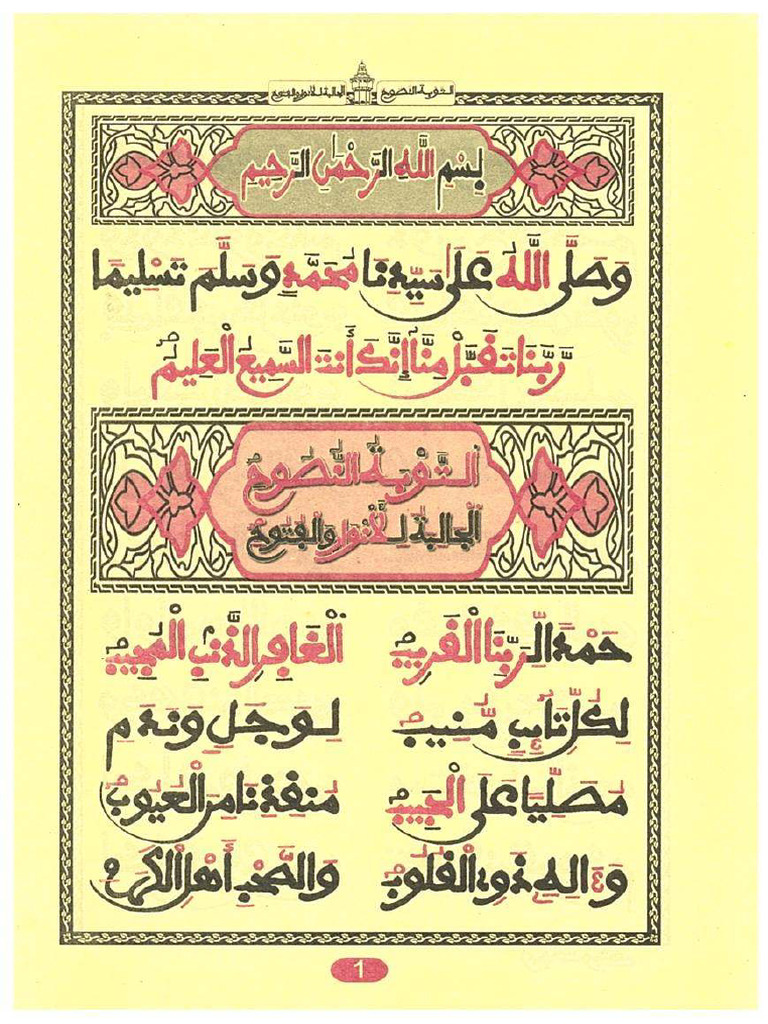 التوبة النصوح والجالبة للأنوار والفتوح
بِسْمِ اللَّهِ الرَّحْمَٰنِ الرَّحِيمِ
وَصَلَّى اللَّهُ عَلَى سَيِّدِنَا مُحَمَّدٍ وَسَلَّمَ تَسْلِيمًا
رَبَّنَا تَقَبَّلْ مِنَّا إِنَّكَ أَنتَ السَّمِيعُ الْعَلِيمُ
التَّوْبَةُ النَّصُوحُ
الجَالِبَةُ لِلَانْوَارِ وَالْفُتُوحِ
حَمْدًا لِرَبِّنَا الْقَرِيبِ الْغَافِرِ الذَّنْبِ الْمُجِيبِ
لِكُلِّ تَائِبٍ مُّنِيبِ لِوَجَلٍ وَنَدَمِ
مُصَلِّيًا عَلَى الْحَبِيبِ مُنْقِذِنَا مِنَ الْعُيُوبِ
وَءَالِهِ ذَوِي الْقُلُوبِ وَالصَّحْبِ أَهْلِ الْكَرَمِ
1